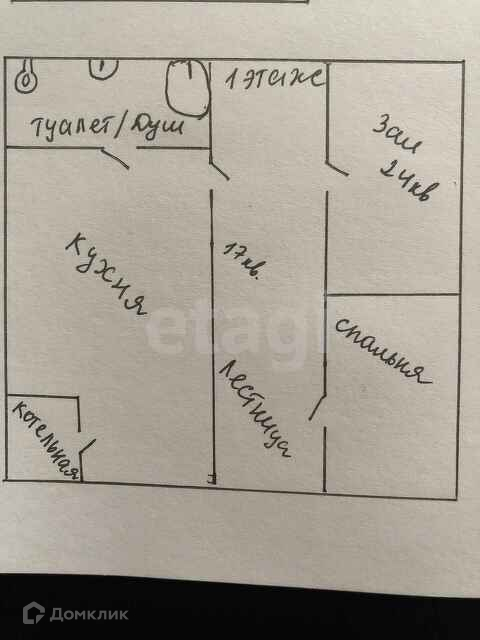 1 этаже
туалет/Душ
Зал
24кв
Кухня
17кв.
etagi
спальня
Лестница
котельная
Домклик